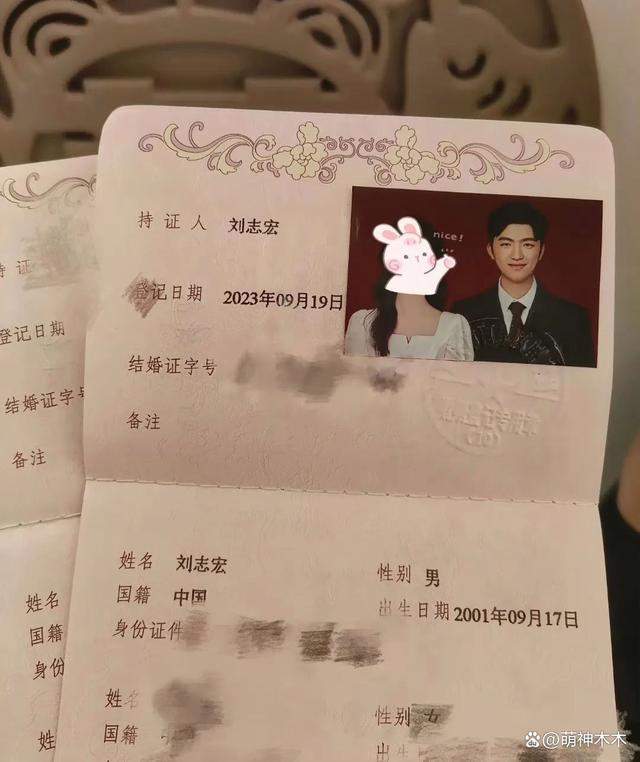 持证人 刘志宏
nice!
登记日期 2023年09月19日
结婚证字号
备注
姓名 刘志宏 性别 男
国籍 中国 出生日期 2001年09月17日
身份证件
姓名 性别 女
国籍
持证
登记日期
结婚证字号
备注
姓名
国籍
身份
姓
百家号@萌神木木